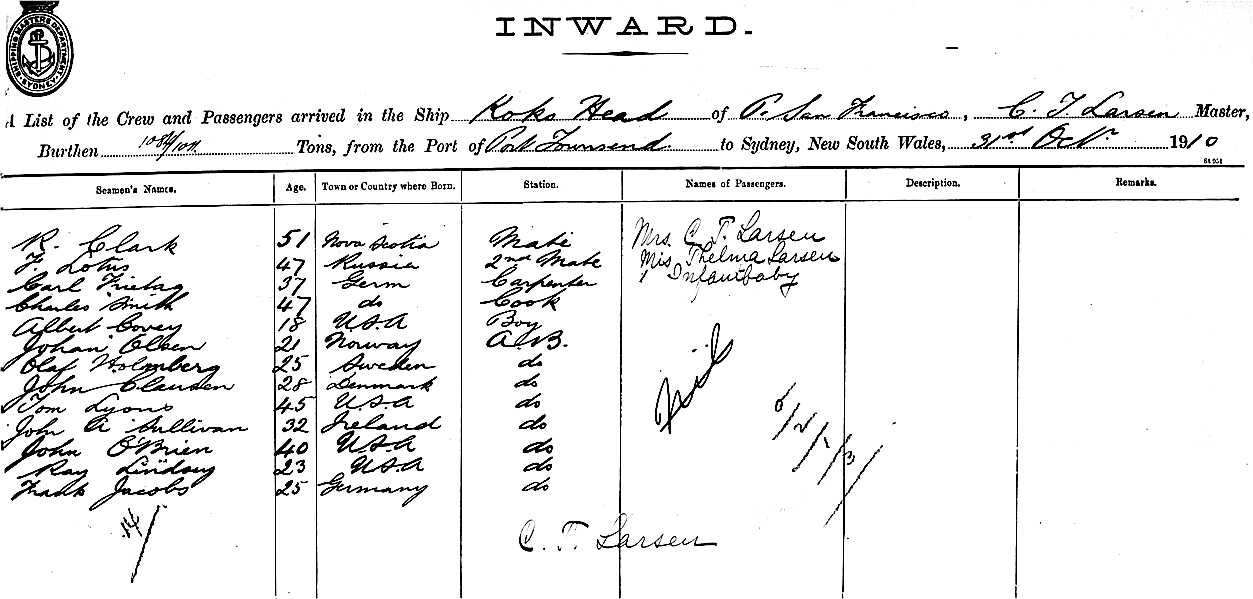 SHIPPING MASTERS DEPARTMENT SYDNEY
INWARD.
A List of the Crew and Passengers arrived in the Ship Koko Head of P. San Francisco, C. T. Larsen Master,
Burthen Tons, from the Port of Port Townsend to Sydney, New South Wales, 31st Octr 1910
Seamen's Names. Age. Town or Country where Born. Station. Names of Passengers. Description. Remarks.
R. Clark 51 Nova Scotia Mate Mrs. C. T. Larsen
J. Lotus 47 Russia 2nd Mate Miss Thelma Larsen
Carl Frietag 37 Germ Carpenter 1 Infant baby
Charles Smith 47 do Cook
Albert Covey 18 U.S.A Boy
Johan Olsen 21 Norway A.B.
Olaf Holmberg 25 Sweden do
John Clausen 28 Denmark do
Tom Lyons 45 U.S.A do
John A Sullivan 32 Ireland do
John O'Brien 40 U.S.A do
Ray Lindsey 23 U.S.A do
Frank Jacobs 25 Germany do
14/
C. T. Larsen